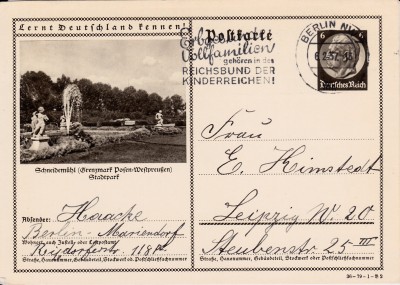 Lernt Deutschland kennen!
Postkarte
Vollfamilien
gehören in den
REICHSBUND DER
KINDERREICHEN!
BERLIN
6 6
Deutsches Reich
Schneidemühl (Grenzmark Posen-Westpreußen)
Stadtpark
Absender: Haacke
Berlin-Mariendorf
Wohnort, auch Zustell- oder Leitpostamt
118
Straße, Hausnummer, Gebäudeteil, Stockwerk oder Postschließfachnummer
Frau
E. Himstedt
Leipzig W. 20
Steubenstr. 25 III
Straße, Hausnummer, Gebäudeteil, Stockwerk oder Postschließfachnummer